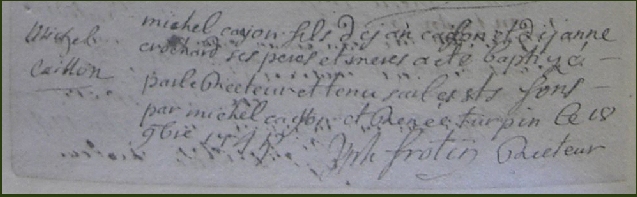 Michel
Caillon
michel cayon fils d jan caillon et d janne
crochard ses peres et meres a ete baptizé
par le Recteur et tenu sur les sts fons
par michel et Renee turpin le 18
9bre
frotin Recteur